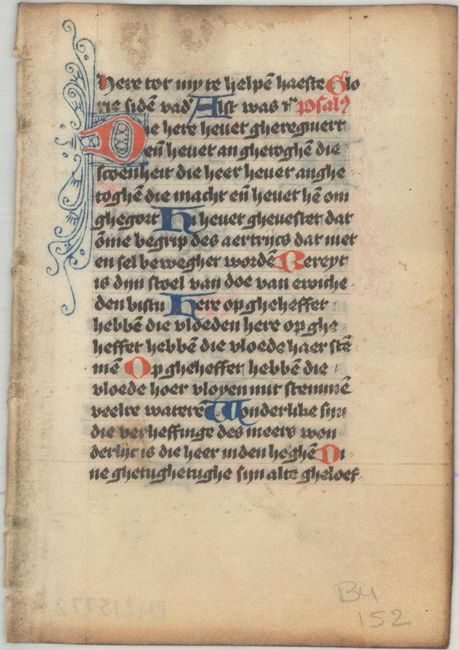 Here tot my te helpē haeste Glo
rie si dē vad' Alst was
De here hevet gheregniert
eñ hevet an ghetoghē die
scoenheit die heer hevet anghe
toghē die macht eñ hevet hē om
ghegort Hi hevet ghevestet dat
ōme begrip des aertrijcs dat niet
en sel beweghet wordē Bereyt
is dijn stoel van doe van ewiche
den bistu Here op gheheffet
hebbē die vloeden here op ghe
heffet hebbē die vloede haer stē
mē Op gheheffet hebbē die
vloede hoer vloyen mit stemmē
veelre waterē Wonderlike sijn
die verheffinge des meers won
derlijc is die heer inden heghē Di
ne ghetughetughe sijn alte gheloef
B4
152